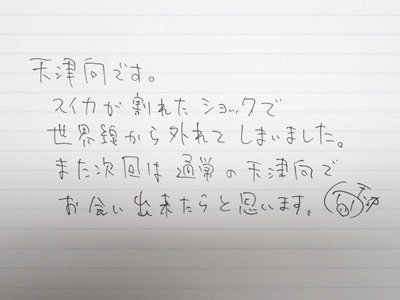 天津向です。
スイカが割れたショックで
世界線から外れてしまいました。
また次回は通常の天津向で
お会い出来たらと思います。